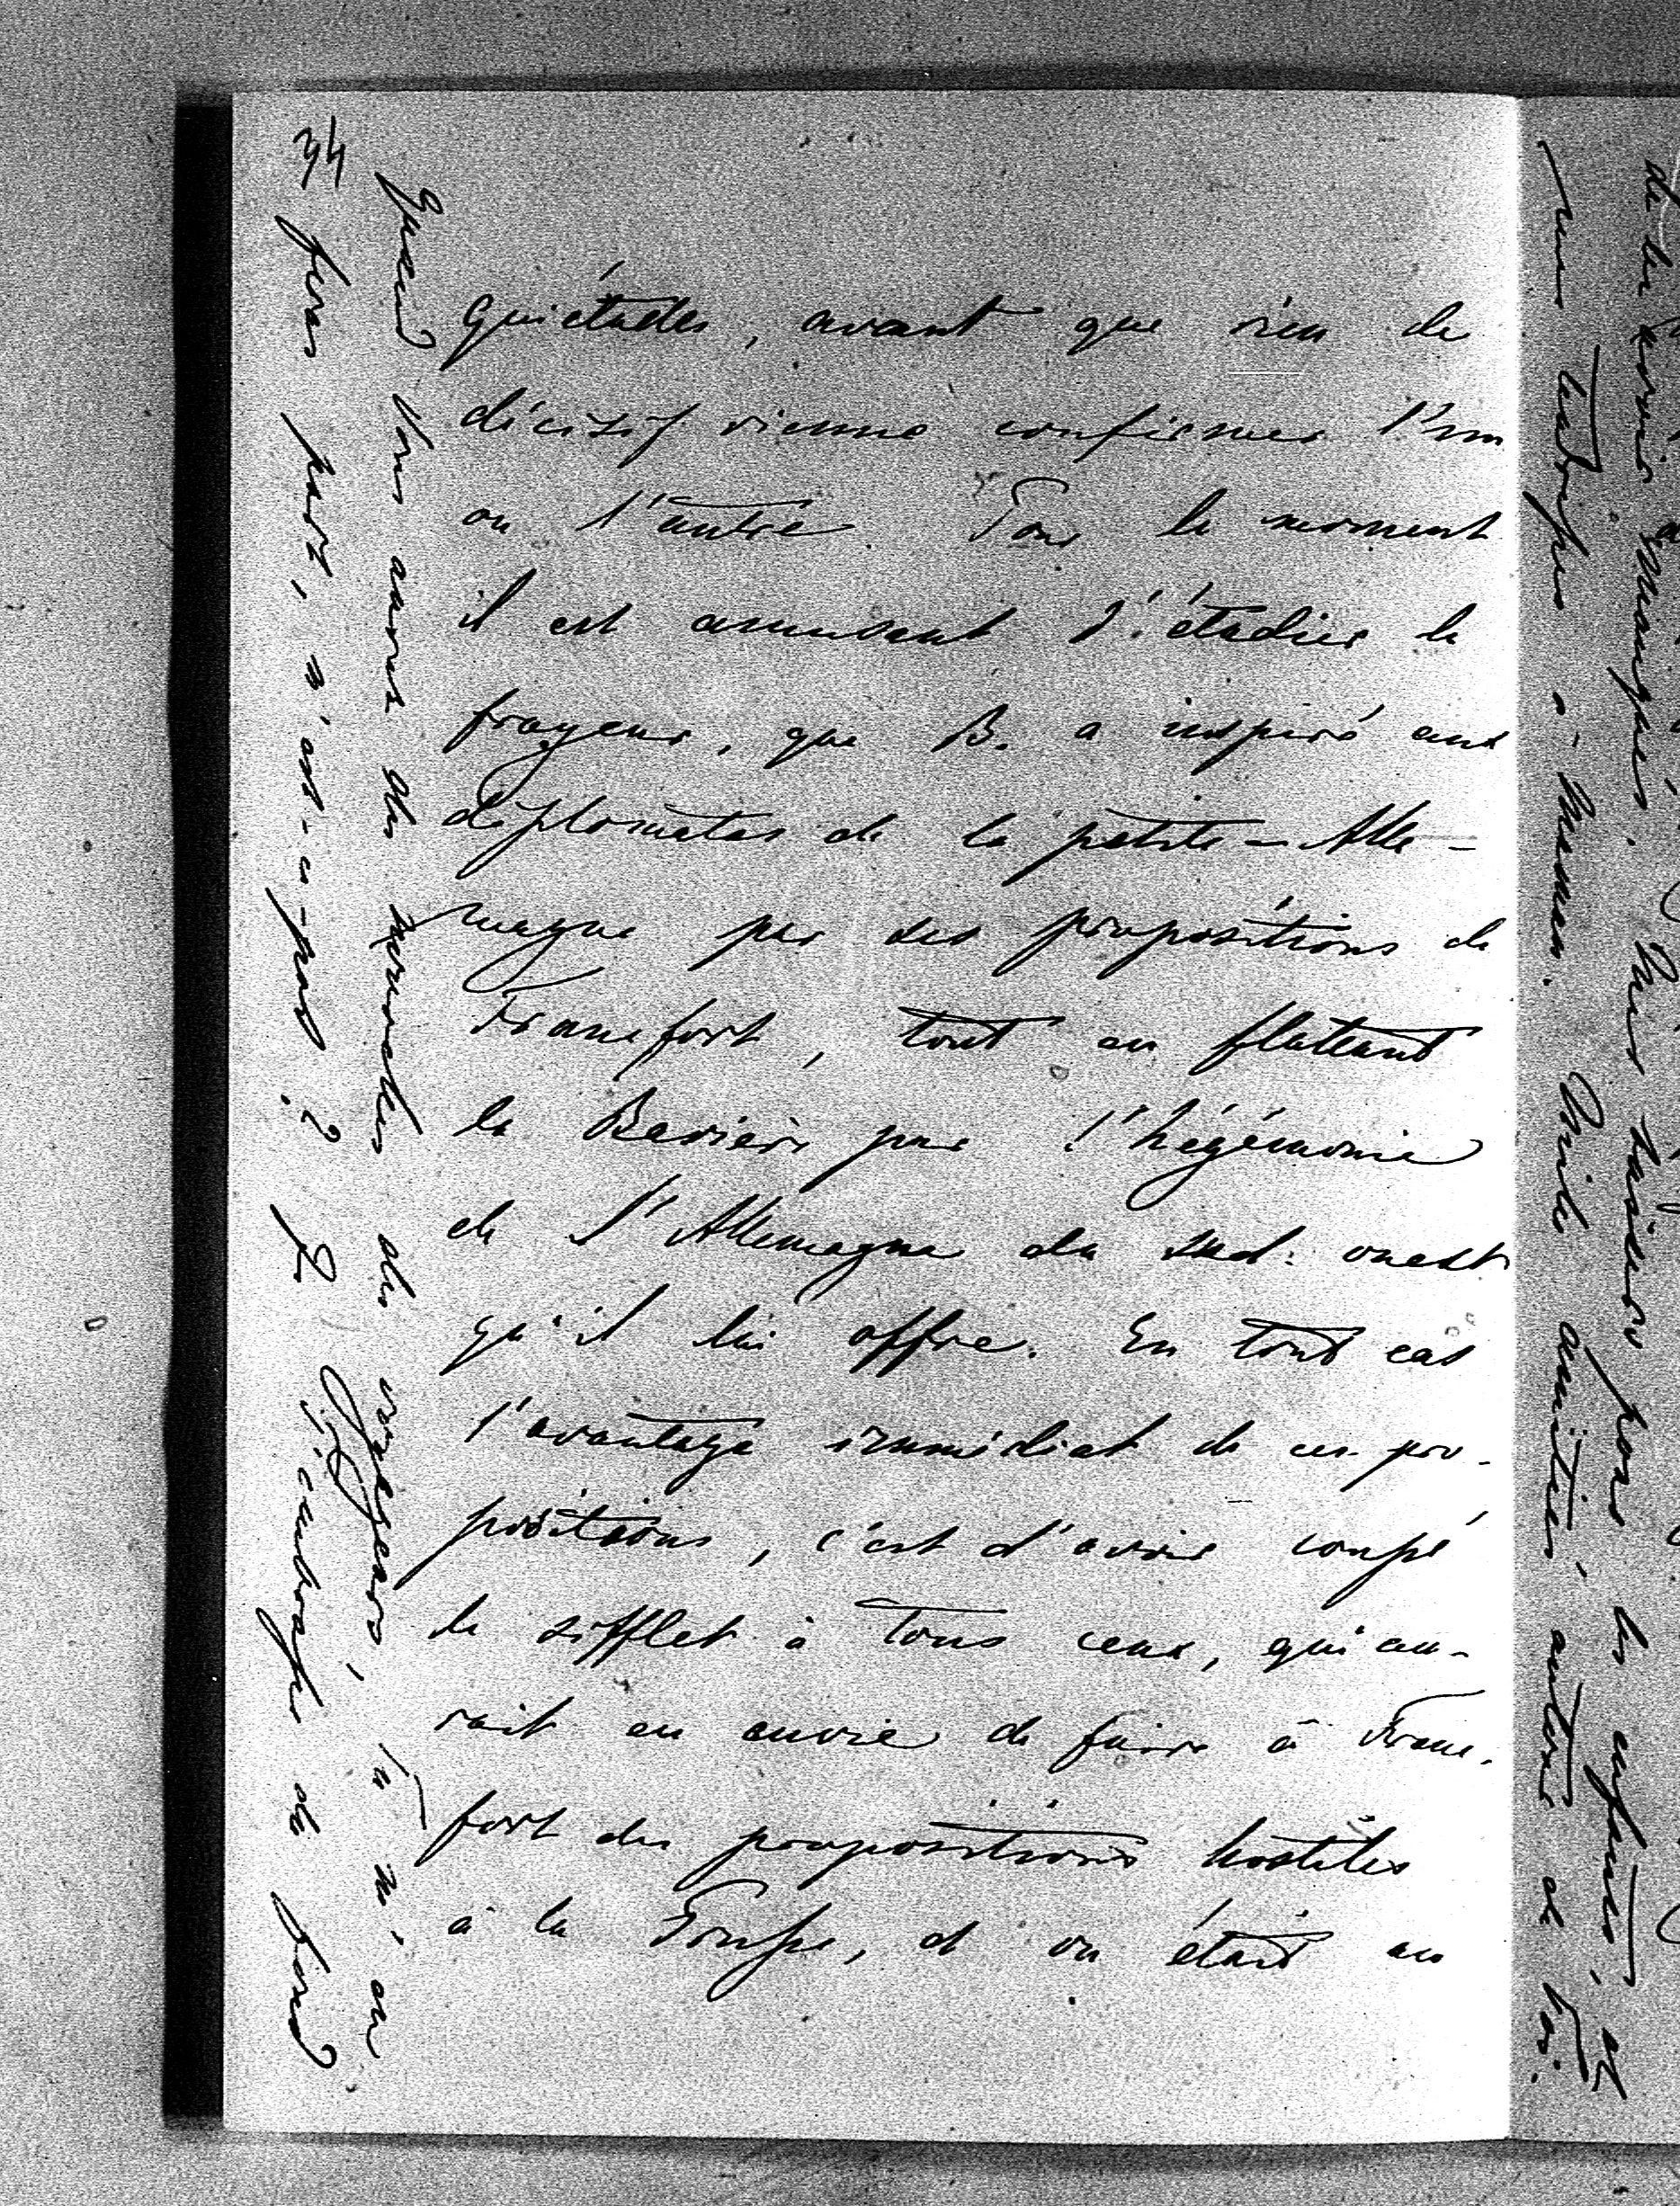 quiétudes, avant que rien de
décisif vienne confirmer l'un
ou l'autre. Pour le moment
il est amusant d'étudier la
frayeur, que B. a inspiré aux
diplomates de la petite-Alle-
magne par ses propositions de
Francfort, tout en flattant
la Bavière par l'hégémonie
de l'Allemagne du sud-ouest
qu'il lui offre. En tout cas
l'avantage immédiat de ces pro-
positions, c'est d'avoir coupé
le sifflet à tous ceux, qui au-
rait eu envie de faire à Franc-
fort des propositions hostiles
à la Prusse, et on était au
Quand vous aurez des nouvelles des voyageurs, tu m'en
feras part, n'est-ce-pas? Je t'embrasse de fond
de la service manquer. Mes baisers pour les enfants, et
mes tendresses à Maman. Mille amitiés, autour de toi.